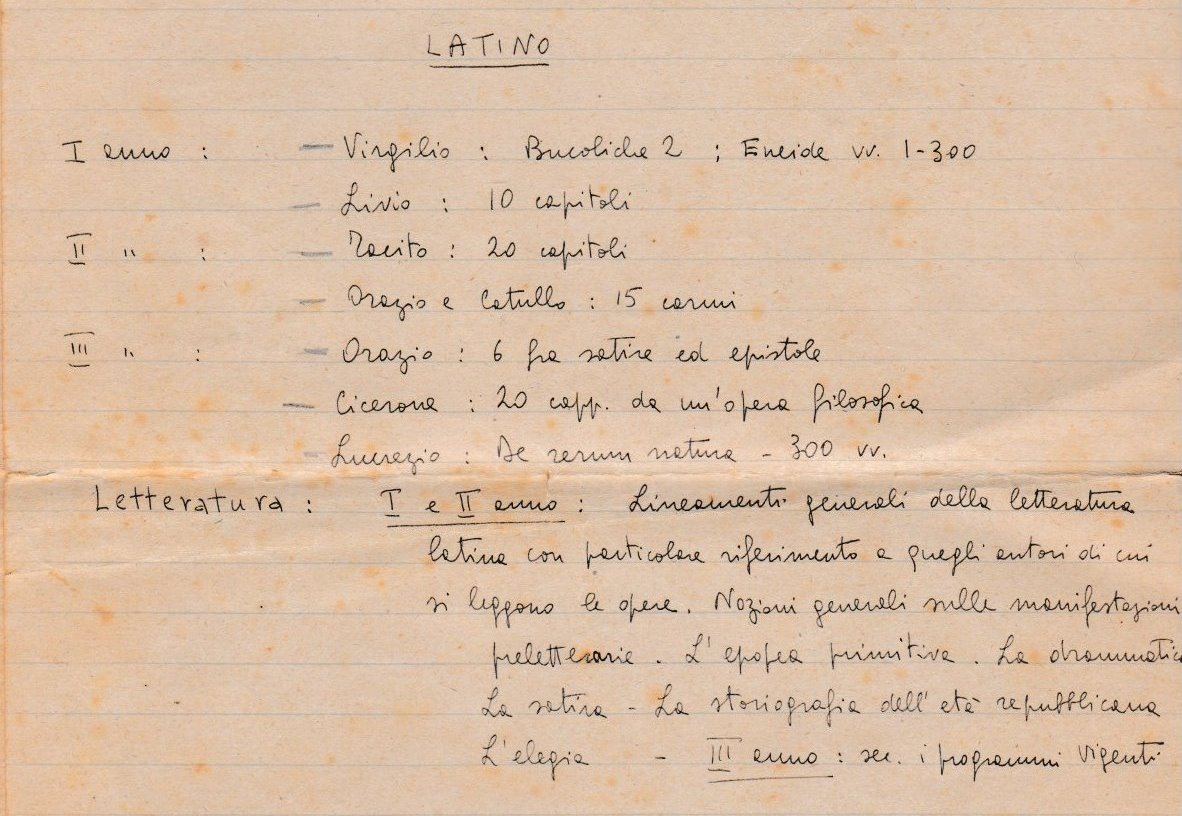 LATINO
I anno : — Virgilio : Bucoliche 2 ; Eneide vv. 1-300
— Livio : 10 capitoli
II " : — Tacito : 20 capitoli
— Orazio e Catullo : 15 carmi
III " : — Orazio : 6 fra satire ed epistole
— Cicerone : 20 capp. da un'opera filosofica
- Lucrezio : De rerum natura - 300 vv.
Letteratura : I e II anno : Lineamenti generali della letteratura
latina con particolare riferimento a quegli autori di cui
si leggono le opere. Nozioni generali sulle manifestazioni
preletterarie. L'epopea primitiva. La drammatica
La satira - La storiografia dell'età repubblicana
L'elegia - III anno : sec. i programmi vigenti